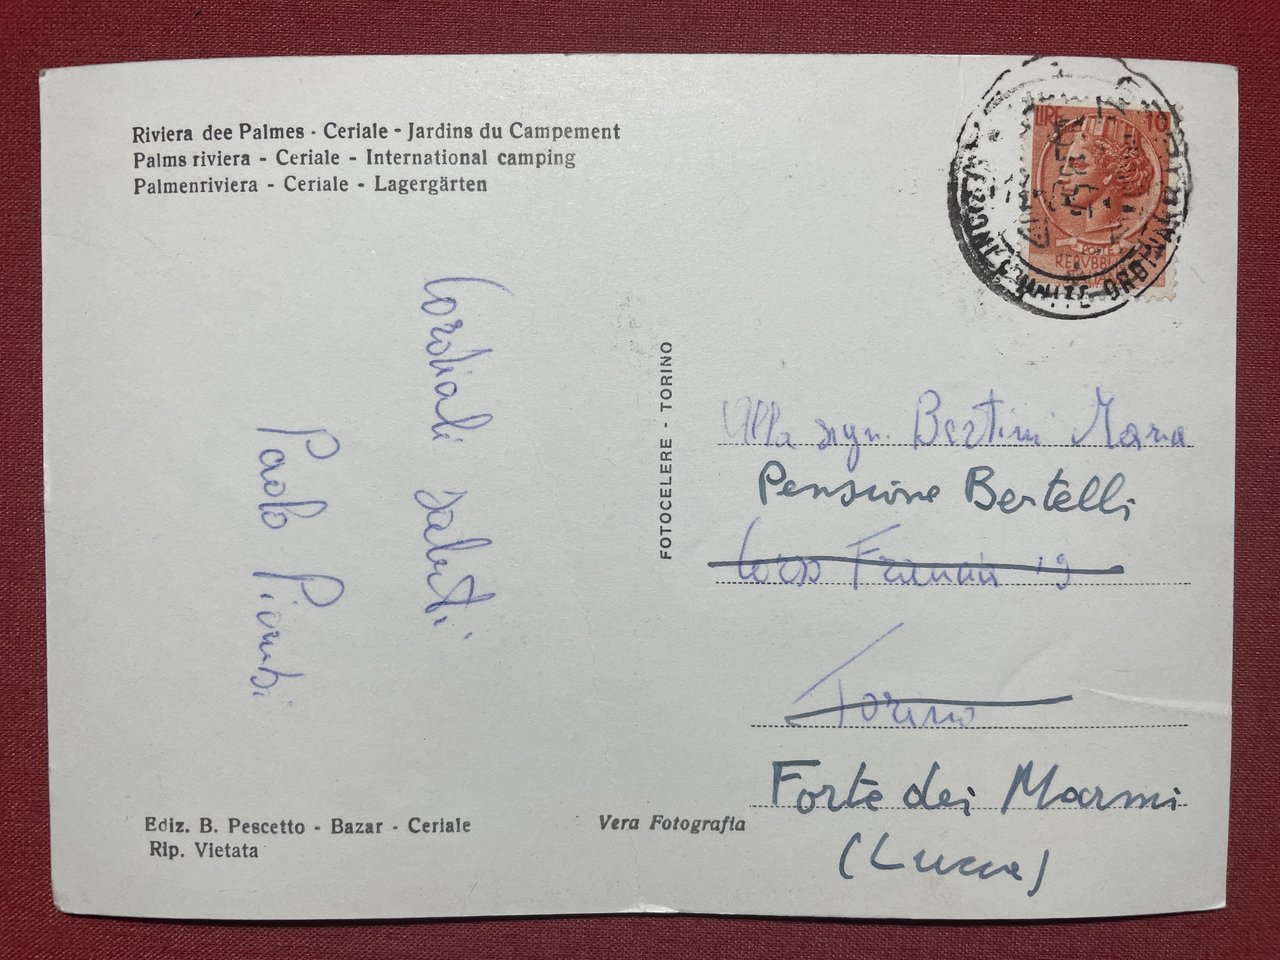 Riviera dee Palmes - Ceriale - Jardins du Campement
Palms riviera - Ceriale - International camping
Palmenriviera - Ceriale - Lagergärten
Cordiali saluti
Paolo Piombi
Ediz. B. Pescetto - Bazar - Ceriale
Rip. Vietata
Vera Fotografia
FOTOCELERE - TORINO
LIRE 10
POSTE
REPVBBLICA
Alla sign. Bertini Maria
Pensione Bertelli
Corso Francia 19
Torino
Forte dei Marmi
(Lucca)